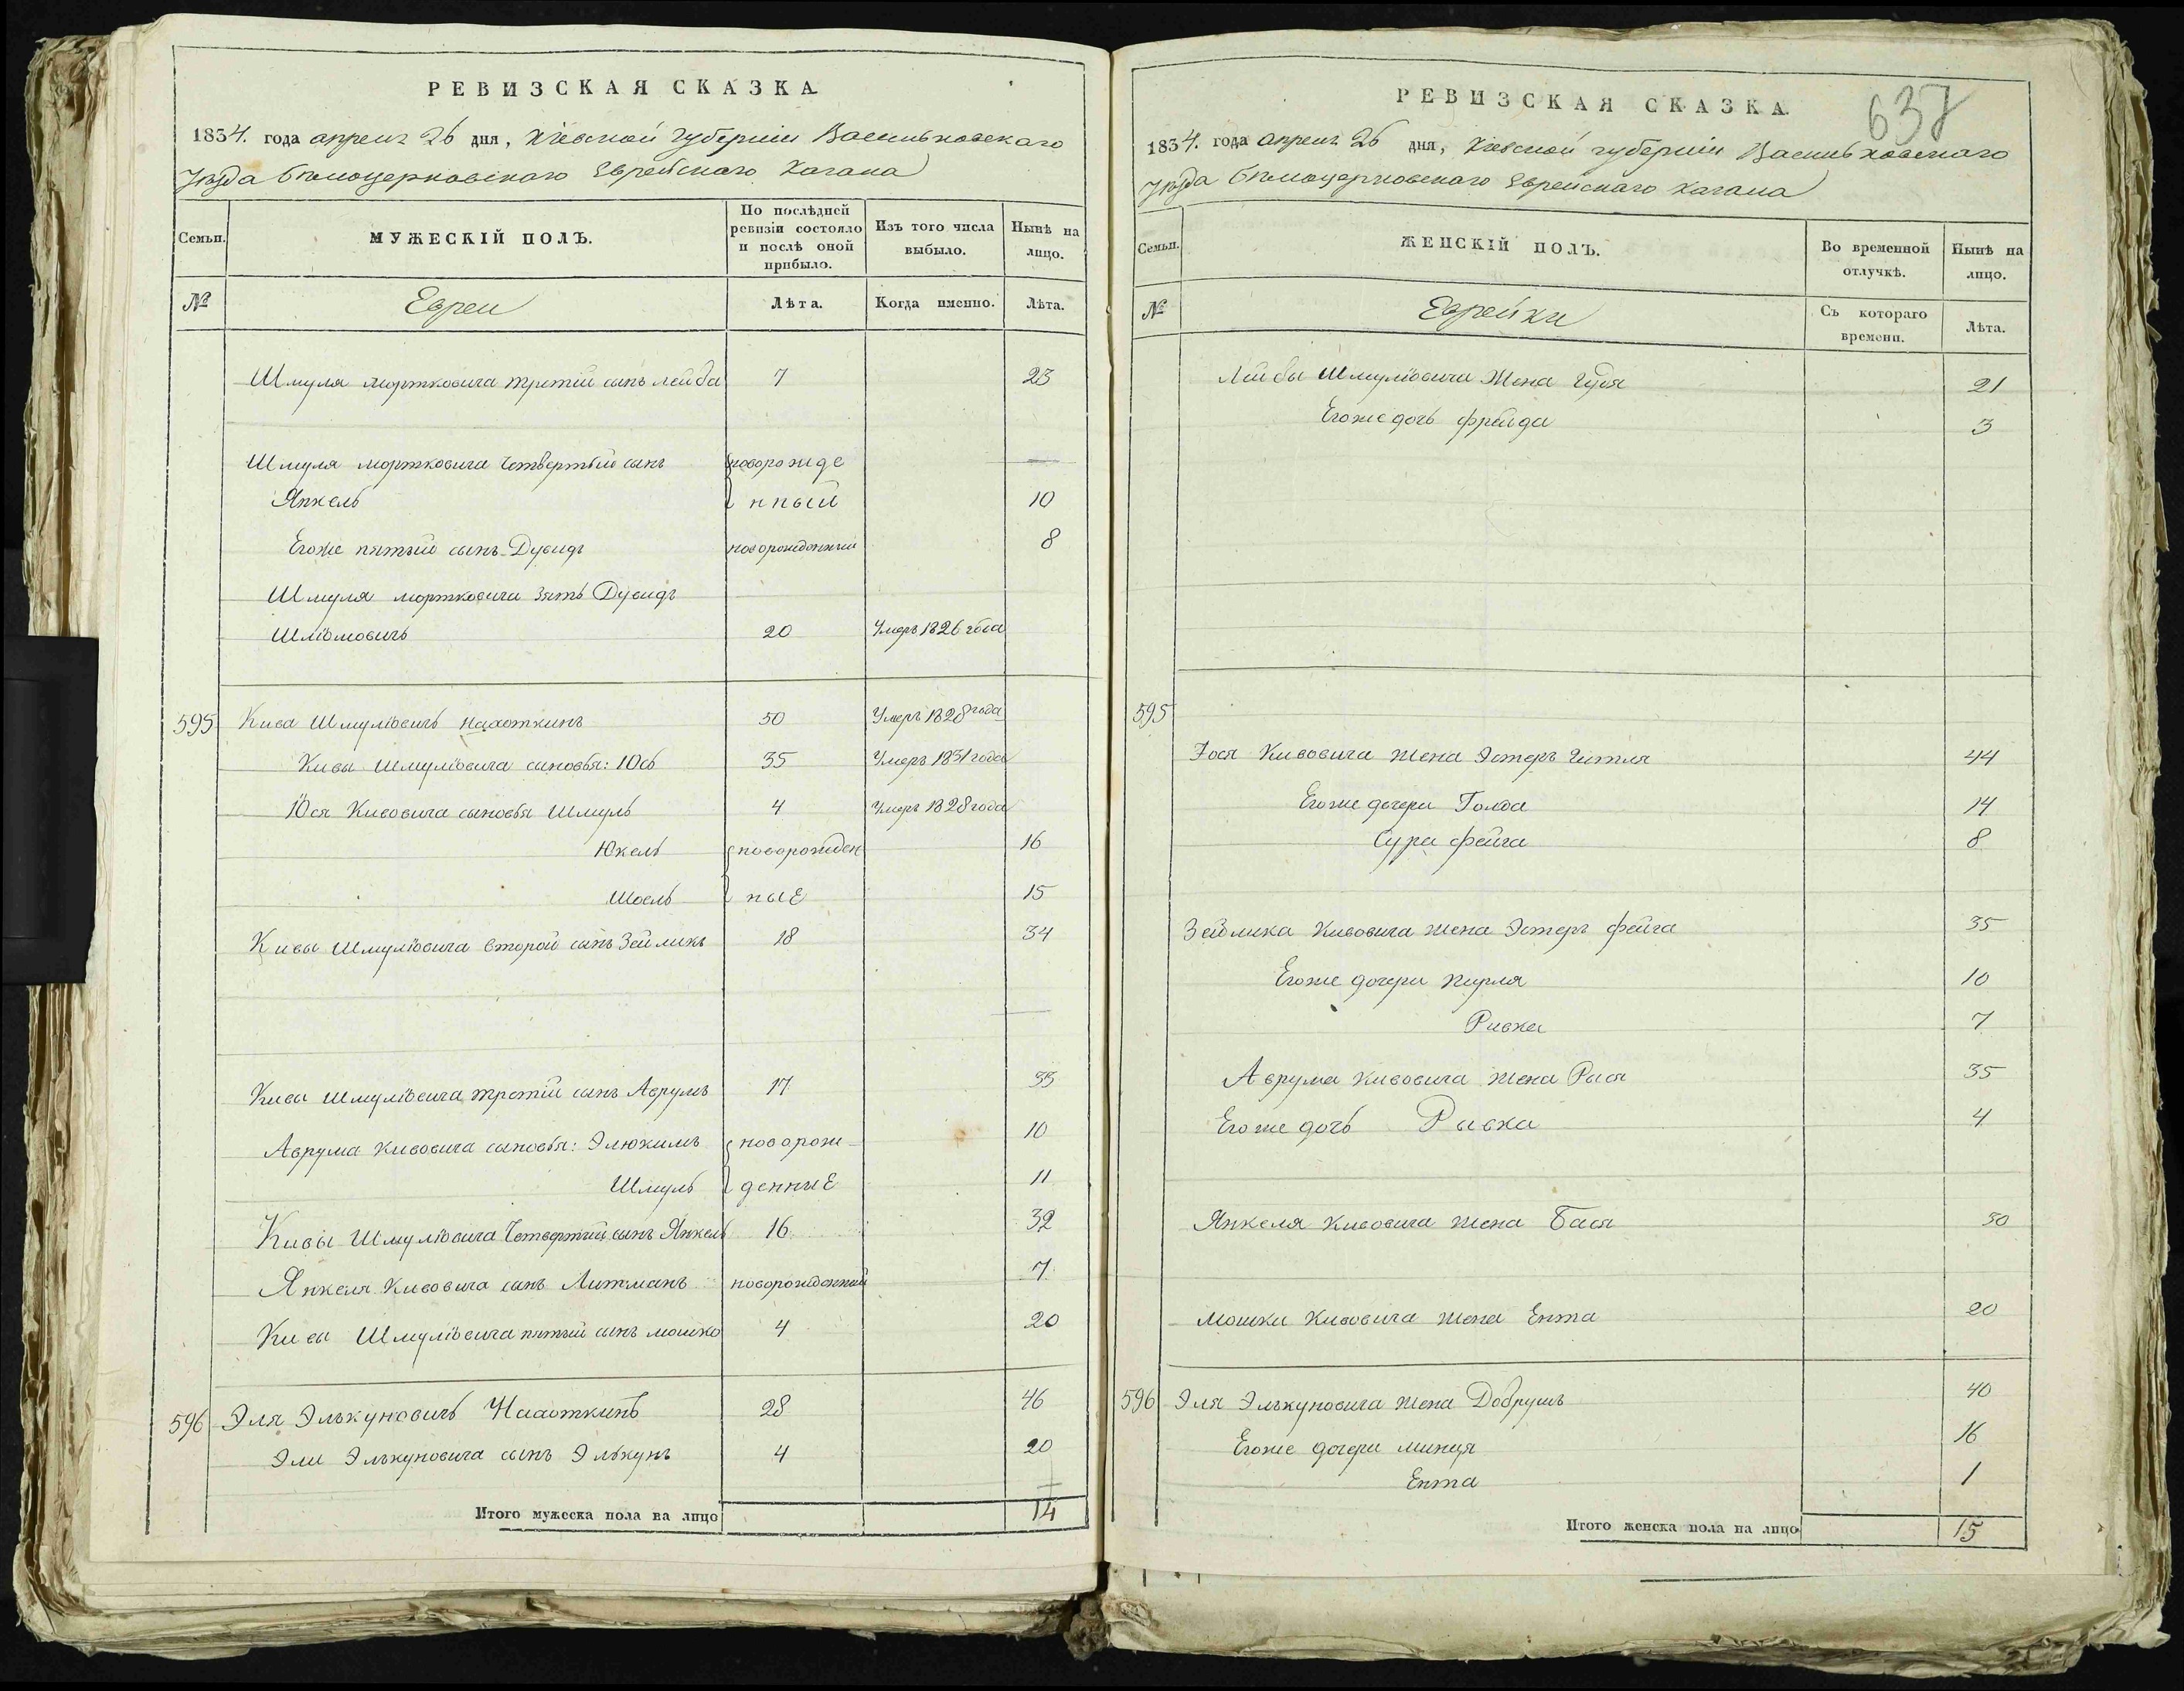 РЕВИЗСКАЯ СКАЗКА
1834. года апреля 26 дня, Кіевской губерніи Васильковскаго
Уѣзда Бѣлоцерковскаго Еврейскаго Кагала
Семьи.
МУЖЕСКІЙ ПОЛЪ.
По послѣдней ревизіи состояло и послѣ оной прибыло.
Изъ того числа выбыло.
Нынѣ на лицо.
№
Евреи
Лѣта.
Когда именно.
Лѣта.
Шмуля Мортковича третій сынъ Лейба 7 23
Шмуля Мортковича Четвертый сынъ новорожде —
Янкель нный 10
Егоже пятый сынъ Дувидъ новорожденный 8
Шмуля Мортковича зять Дувидъ
Шліомовичъ 20 Умеръ 1826 года
595 Кива Шмуліовичъ Нахоткинъ 50 Умеръ 1828 года
Кивы Шмуліовича сыновья: Юсь 35 Умеръ 1831 года
Юся Кивовича сыновья Шмуль 4 Умеръ 1828 года
Юкель новорожден 16
Шоель ные 15
Кивы Шмуліовича второй сынъ Зейликъ 18 34
Кивы Шмуліовича третій сынъ Аврумъ 17 33
Аврума Кивовича сыновья: Элюкимъ новорож 10
Шмуль денные 11
Кивы Шмуліовича Четвертый сынъ Янкель 16 32
Янкеля Кивовича сынъ Литманъ новорожденный 7
Кивы Шмуліовича пятый сынъ Мошко 4 20
596 Эля Элькуновичъ 28 46
Эли Элькуновича сынъ Элькунъ 4 20
Итого мужеска пола на лицо 14
РЕВИЗСКАЯ СКАЗКА
637
1834. года апреля 26 дня, Кіевской губерніи Васильковскаго
Уѣзда Бѣлоцерковскаго Еврейскаго Кагала
Семьи.
ЖЕНСКІЙ ПОЛЪ.
Во временной отлучкѣ.
Нынѣ на лицо.
№
Еврейки
Съ котораго времени.
Лѣта.
Лейбы Шмуліовича Жена Гудя 21
Егоже дочь Фрейда 3
595
Юся Кивовича жена Эстеръ Гитля 44
Егоже дочери Голда 14
Сура Фейга 8
Зейлика Кивовича жена Эстеръ Фейга 35
Егоже дочери Пирля 10
Ривка 7
Аврума Кивовича жена Рися 35
Егоже дочь Рывка 4
Янкеля Кивовича жена Бася 30
Мошки Кивовича жена Ента 20
596 Эля Элькуновича жена Добрушъ 40
Егоже дочери Минця 16
Ента 1
Итого женска пола на лицо 15